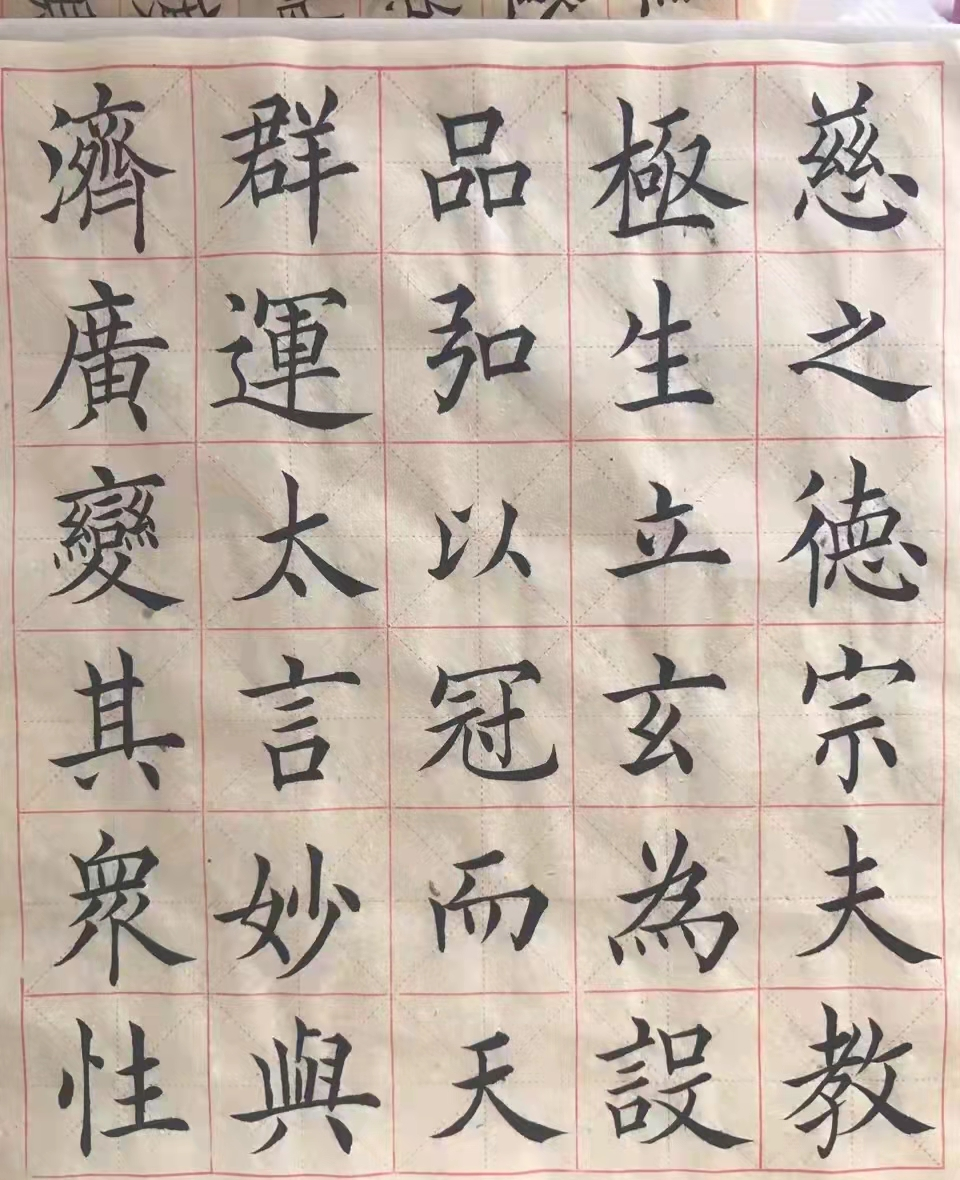 慈之德宗夫教
極生立玄為設
品弘以冠而天
群運太言妙與
濟廣變其衆性